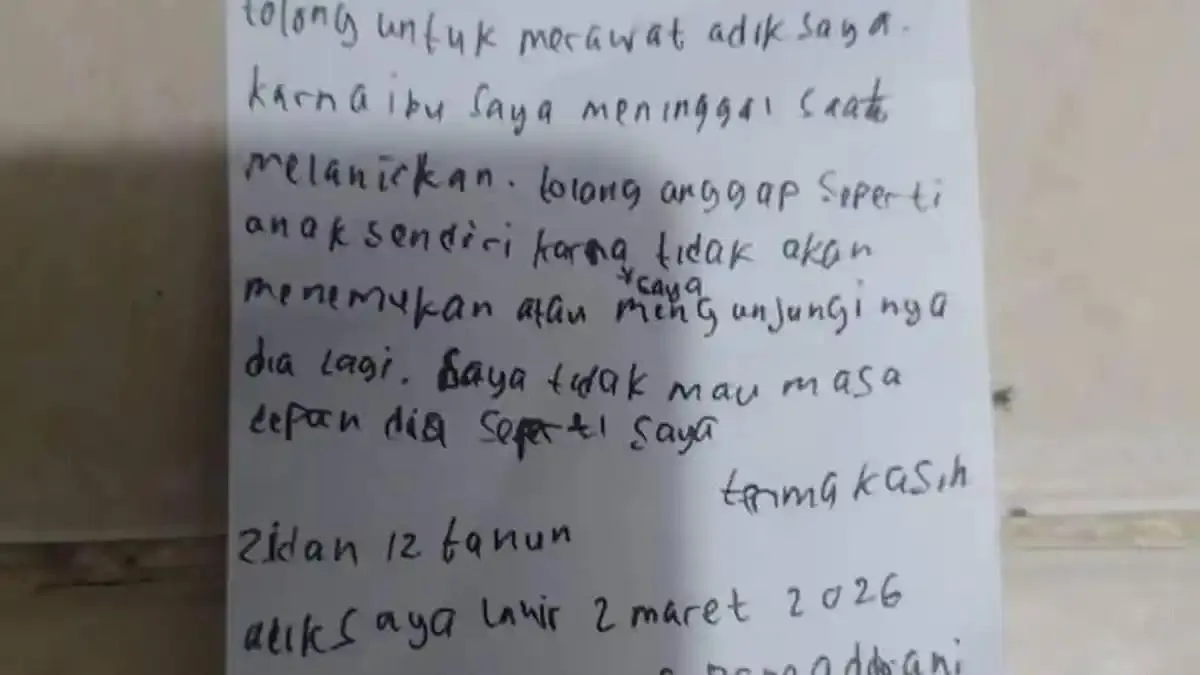 tolong untuk merawat adik saya.
karna ibu saya meninggal saat
melanirkan. tolong anggap seperti
anak sendiri karna tidak akan
*saya
menemukan atau mengunjungi nya
dia lagi. Saya tidak mau masa
depan dia seperti saya
terima kasih
Zidan 12 tahun
adik saya lahir 2 maret 2026